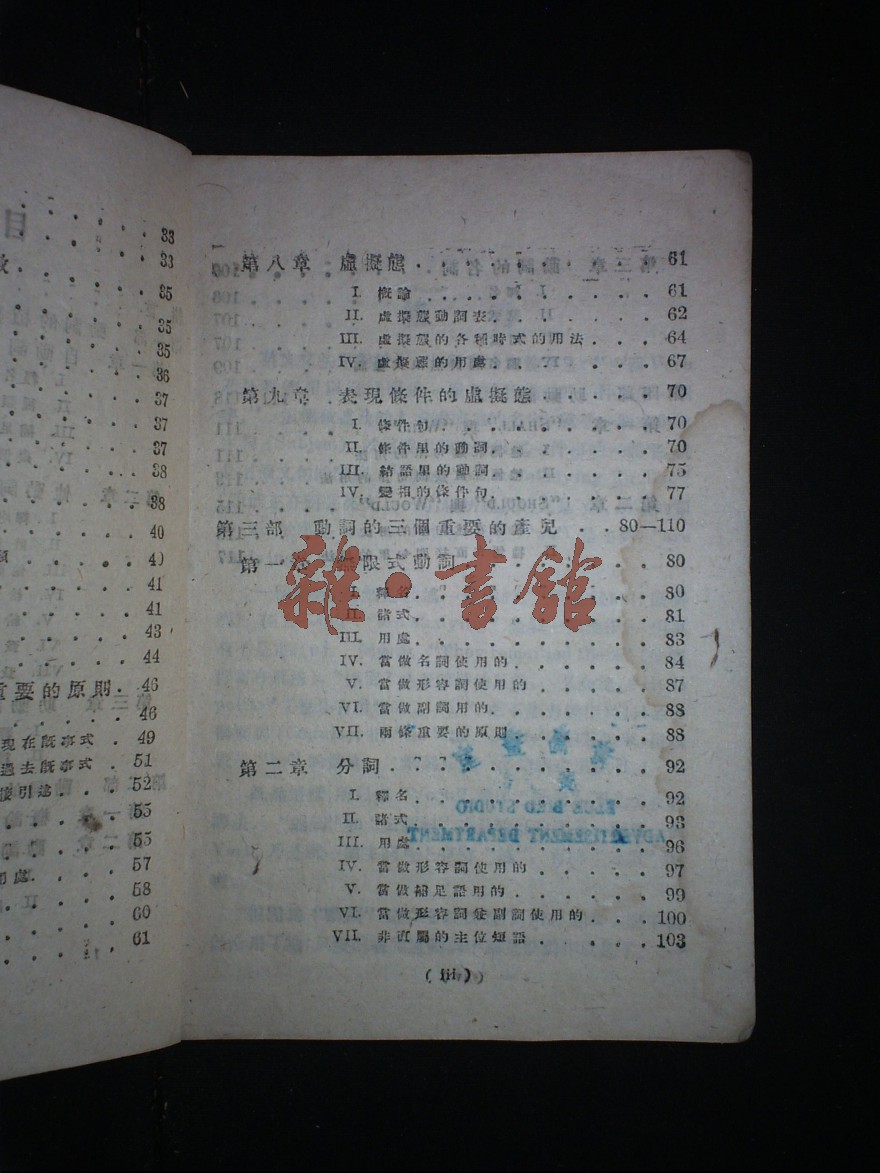 33
33
35
35
35
36
37
37
38
38
40
40
41
41
43
44
重要的原則. 46
46
現在既事式 . 49
過去既事式 . 51
接引述 . . . 52
55
55
用處. 57
58
60
61
第八章 虛擬態 . . . . . . . . 61
I. 概論 . . . . . . . . 61
II. 虛擬態動詞表 . . . . . . 62
III. 虛擬態的各種時式的用法 . . . 64
IV. 虛擬態的用處 . . . . . . 67
第九章 表現條件的虛擬態 . . . . 70
I. 條件句 . . . . . . . . 70
II. 條件里的動詞 . . . . . . 70
III. 結語里的動詞 . . . . . . 75
IV. 變相的條件句 . . . . . . 77
第三部 動詞的三個重要的產兒 . . 80—110
第一章 無限式動詞 . . . . . . 80
I. 釋名 . . . . . . . . 80
II. 諸式 . . . . . . . . 81
III. 用處 . . . . . . . . 83
IV. 當做名詞使用的 . . . . . 84
V. 當做形容詞使用的 . . . . 87
VI. 當做副詞用的 . . . . . . 88
VII. 兩條重要的原則 . . . . . 88
第二章 分詞 . . . . . . . . 92
I. 釋名 . . . . . . . . 92
II. 諸式 . . . . . . . . 93
III. 用處 . . . . . . . . 96
IV. 當做形容詞使用的 . . . . 97
V. 當做補足語用的 . . . . . 99
VI. 當做形容詞兼副詞使用的 . . . 100
VII. 非直屬的主位短語 . . . . 103
( iii )
雜·書館